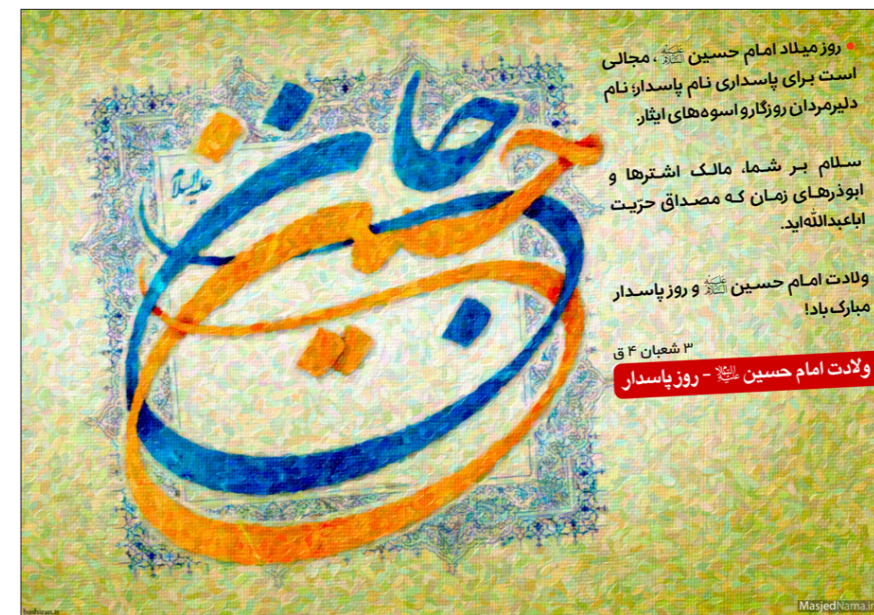 روز میلاد امام حسین علیه‌السلام، مجالی
است برای پاسداری نام پاسدار؛ نام
دلیرمردان روزگار و اسوه‌های ایثار.
سلام بر شما، مالک اشترها و
ابوذرهای زمان که مصداق حرّیت
اباعبداللّه‌اید.
ولادت امام حسین علیه‌السلام و روز پاسدار
مبارک باد!
۳ شعبان ۴ ق
ولادت امام حسین علیه‌السلام - روز پاسدار
جان
حسین
علیه السلام
MasjedNama.ir